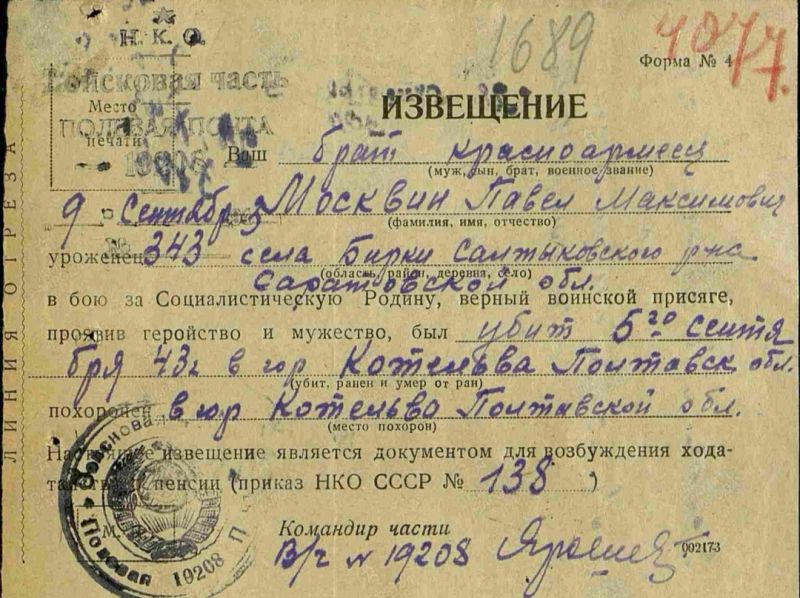 1689
4077.
Н. К. О.
Форма № 4
Войсковая часть
Место
ИЗВЕЩЕНИЕ
ПОЛЕВАЯ ПОЧТА
печати
19208
Ваш брат красноармеец
(муж, сын, брат, военное звание)
9 Сентябр 3 Москвин Павел Максимович
(фамилия, имя, отчество)
№ 343
уроженец села Бирки Салтыковского р-на
(область, район, деревня, село)
Саратовской обл.
в бою за Социалистическую Родину, верный воинской присяге,
проявив геройство и мужество, был убит 5го сентя
бря 43г в гор Котельва Полтавск обл.
(убит, ранен и умер от ран)
похоронен в гор Котельва Полтавской обл.
(место похорон)
Настоящее извещение является документом для возбуждения хода-
тайства о пенсии (приказ НКО СССР № 138)
М.
Командир части
В/ч N 19208
002173
Полевая 19208 П
ЛИНИЯ ОТРЕЗА